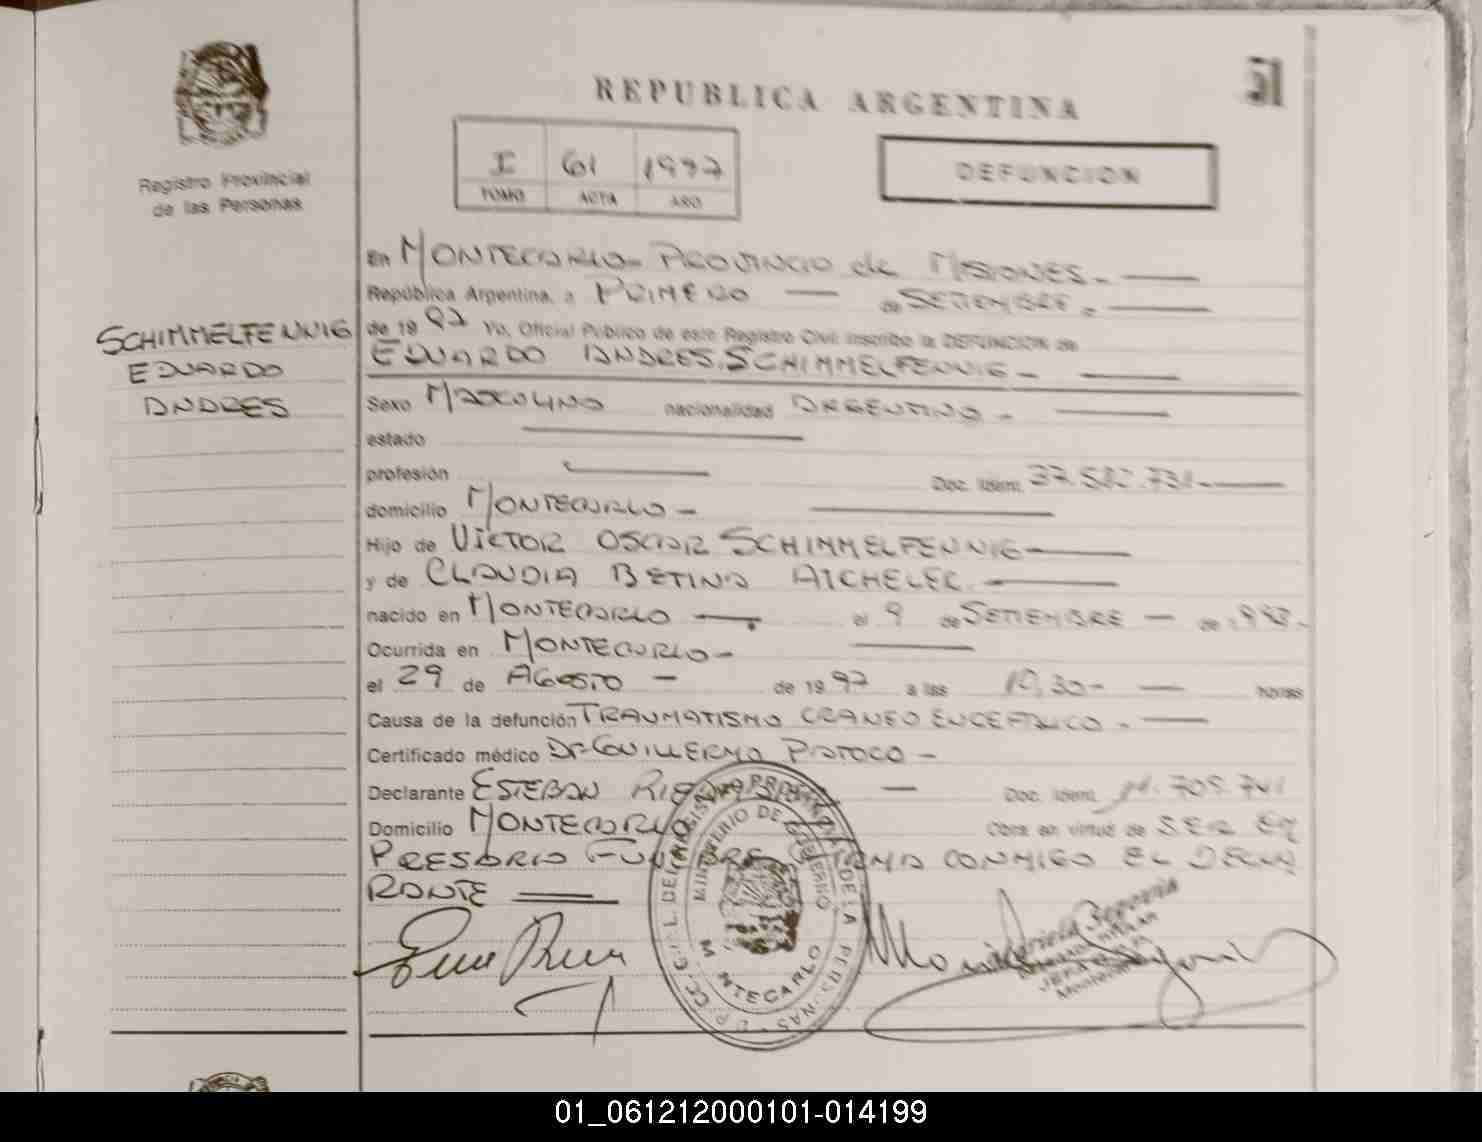 51
REPUBLICA ARGENTINA
I 61 1997
TOMO ACTA AÑO
DEFUNCION
Registro Provincial
de las Personas
SCHIMMELFENNIG
EDUARDO
ANDRES
En MONTECARLO- PROVINCIA de MISIONES-
República Argentina, a PRIMERO de SETIEMBRE-
de 1997 Yo, Oficial Público de este Registro Civil inscribo la DEFUNCION de
EDUARDO ANDRES SCHIMMELFENNIG-
Sexo MASCULINO nacionalidad ARGENTINO-
estado
profesión Doc. Ident.
domicilio MONTECARLO-
Hijo de VICTOR OSCAR SCHIMMELFENNIG
y de CLAUDIA BETINA AICHELER-
nacido en MONTECARLO el 9 de SETIEMBRE de
Ocurrida en MONTECARLO-
el 29 de AGOSTO - de 1997 a las horas
Causa de la defunción TRAUMATISMO CRANEO ENCEFALICO-
Certificado médico Dr GUILLERMO
Declarante ESTEBAN Doc. Ident.
Domicilio MONTECARLO Obra en virtud de SER EM
PRESARIO FUNEBRE FIRMA CONMIGO EL DECLA
RANTE
MINISTERIO DE GOBIERNO
MONTECARLO
01_061212000101-014199